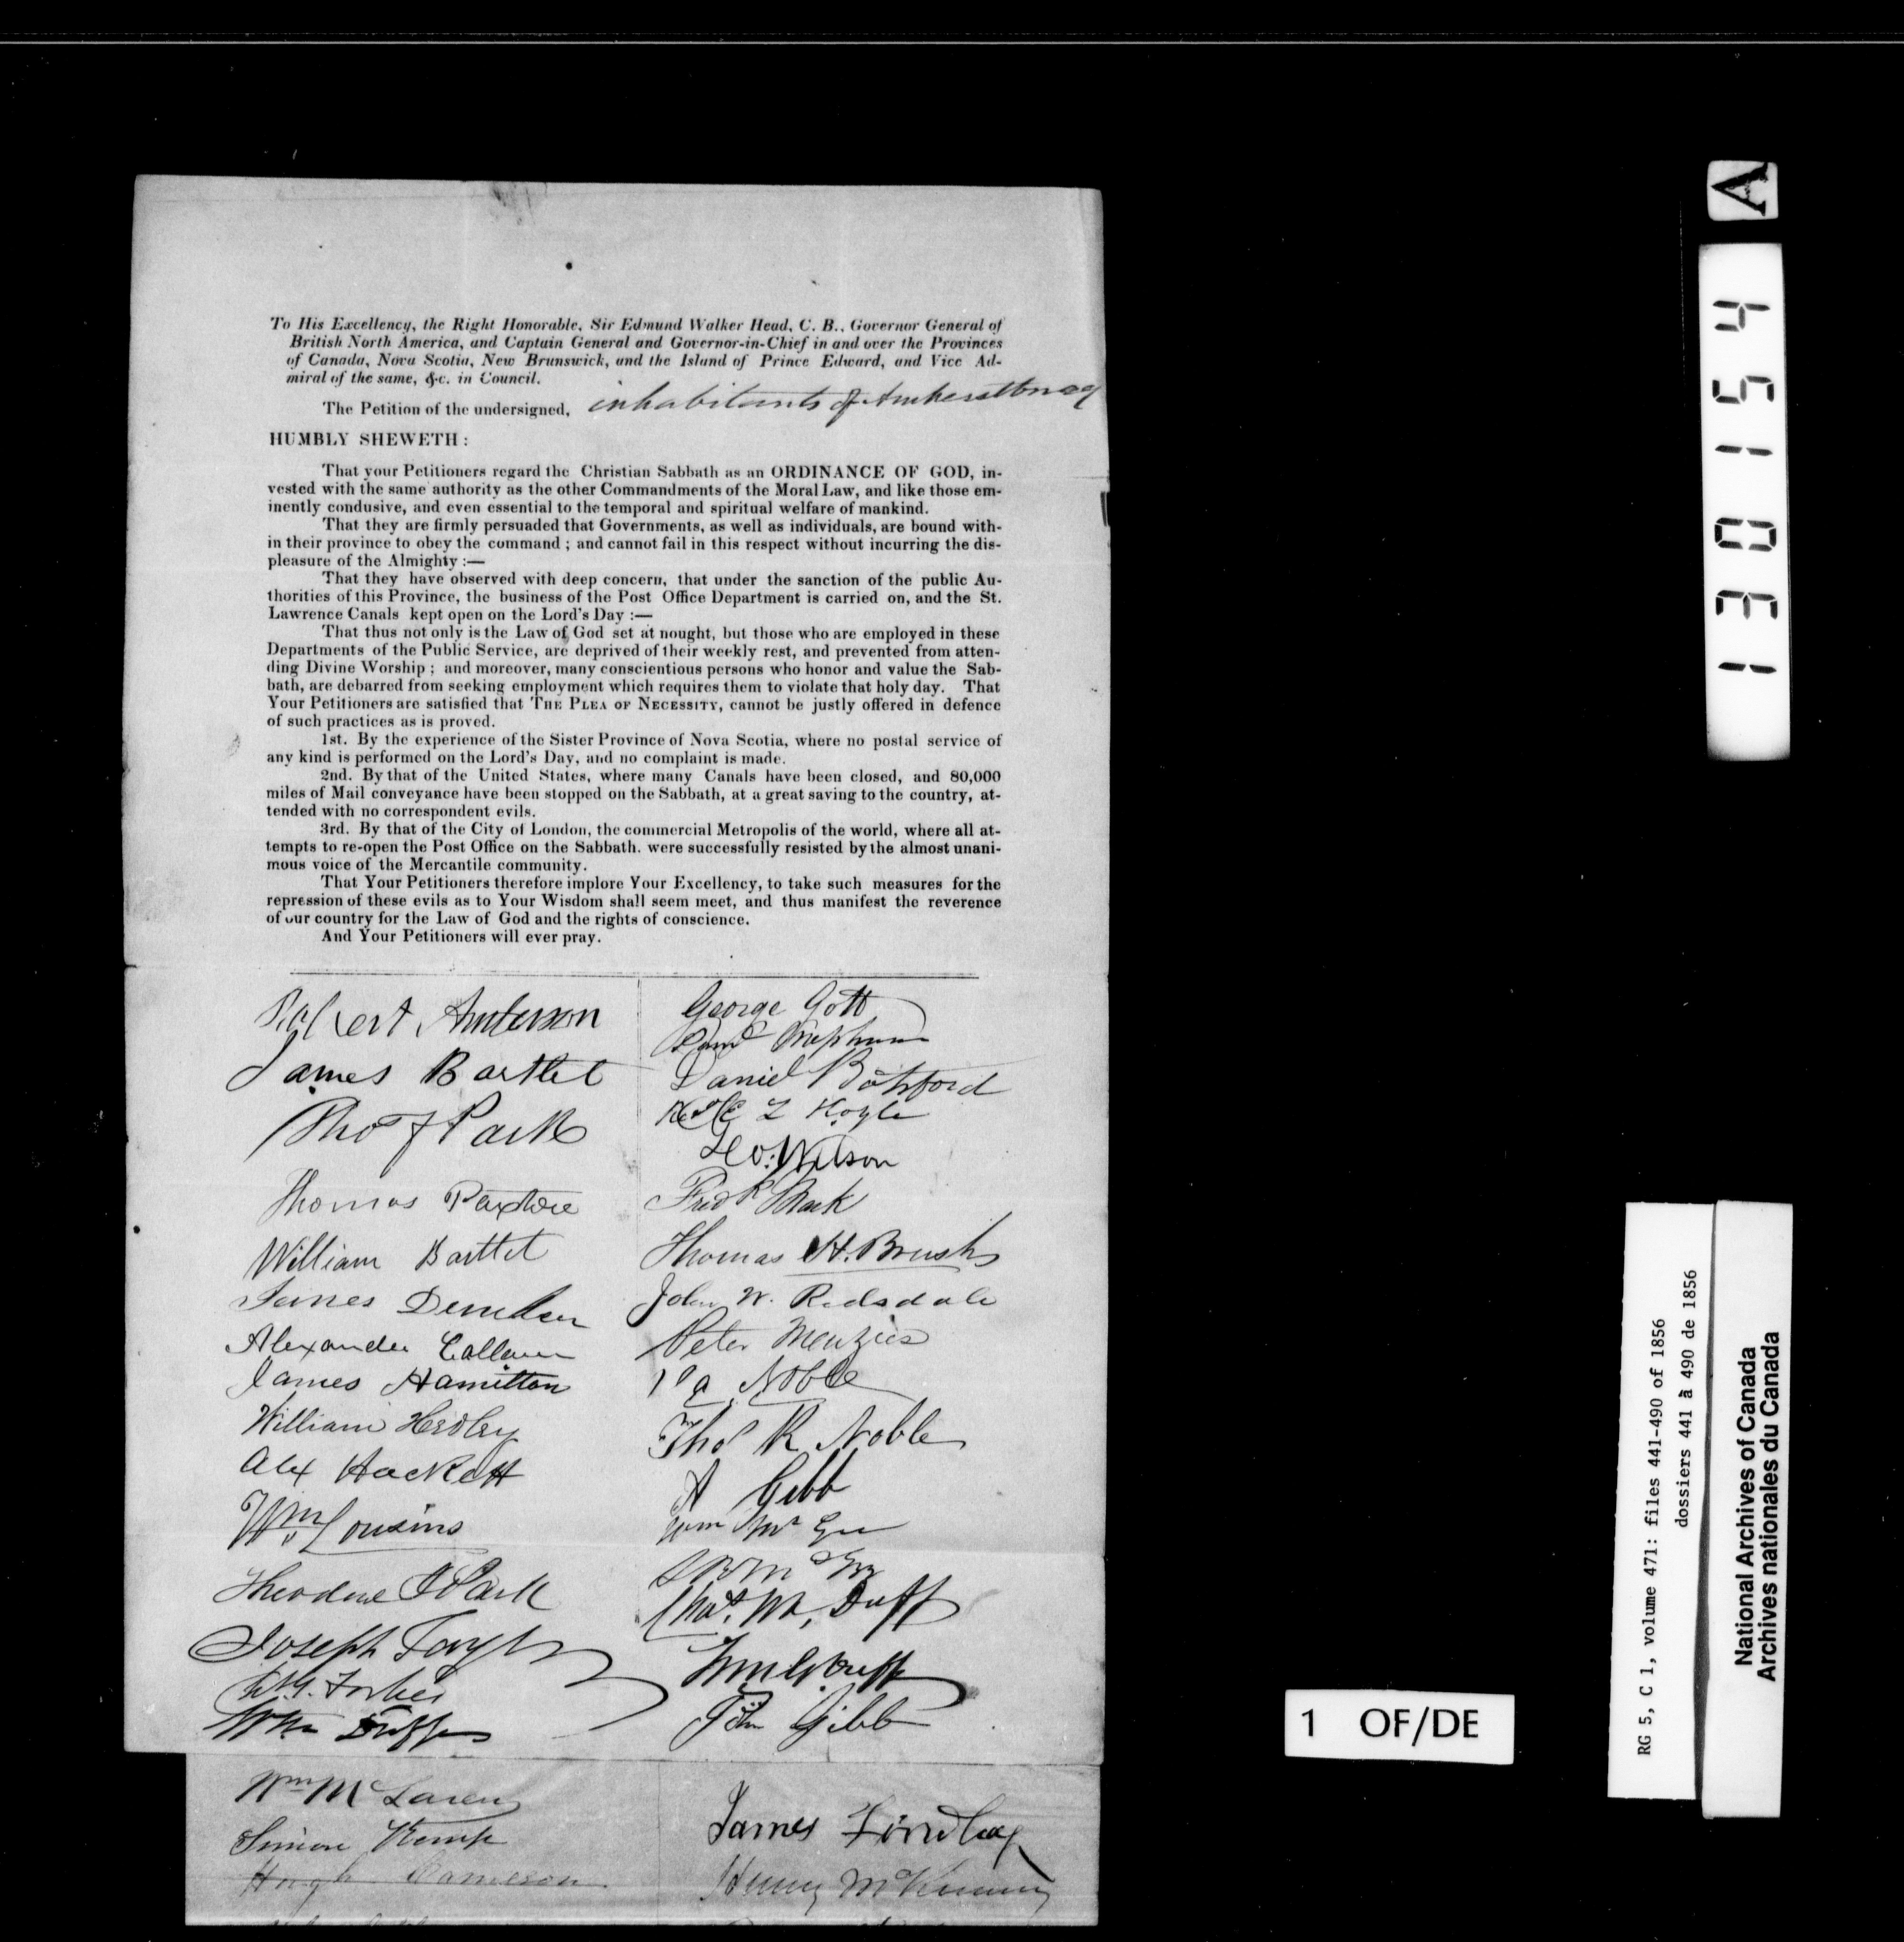 To His Excellency, the Right Honorable, Sir Edmund Walker Head, C. B., Governor General of
British North America, and Captain General and Governor-in-Chief in and over the Provinces
of Canada, Nova Scotia, New Brunswick, and the Island of Prince Edward, and Vice Ad-
miral of the same, &c. in Council.
The Petition of the undersigned, inhabitants of Amherstburg
HUMBLY SHEWETH :
That your Petitioners regard the Christian Sabbath as an ORDINANCE OF GOD, in-
vested with the same authority as the other Commandments of the Moral Law, and like those em-
inently condusive, and even essential to the temporal and spiritual welfare of mankind.
That they are firmly persuaded that Governments, as well as individuals, are bound with-
in their province to obey the command ; and cannot fail in this respect without incurring the dis-
pleasure of the Almighty :—
That they have observed with deep concern, that under the sanction of the public Au-
thorities of this Province, the business of the Post Office Department is carried on, and the St.
Lawrence Canals kept open on the Lord's Day :—
That thus not only is the Law of God set at nought, but those who are employed in these
Departments of the Public Service, are deprived of their weekly rest, and prevented from atten-
ding Divine Worship ; and moreover, many conscientious persons who honor and value the Sab-
bath, are debarred from seeking employment which requires them to violate that holy day. That
Your Petitioners are satisfied that THE PLEA OF NECESSITY, cannot be justly offered in defence
of such practices as is proved.
1st. By the experience of the Sister Province of Nova Scotia, where no postal service of
any kind is performed on the Lord's Day, and no complaint is made.
2nd. By that of the United States, where many Canals have been closed, and 80,000
miles of Mail conveyance have been stopped on the Sabbath, at a great saving to the country, at-
tended with no correspondent evils.
3rd. By that of the City of London, the commercial Metropolis of the world, where all at-
tempts to re-open the Post Office on the Sabbath. were successfully resisted by the almost unani-
mous voice of the Mercantile community.
That Your Petitioners therefore implore Your Excellency, to take such measures for the
repression of these evils as to Your Wisdom shall seem meet, and thus manifest the reverence
of our country for the Law of God and the rights of conscience.
And Your Petitioners will ever pray.
Robert Anderson
James Bartlet
Thos J Park
Thomas
William Bartlet
James
Alexander Callam
James Hamilton
William Hedley
Alex Hackett
Wm Cousins
Theodore J Park
Joseph Taylor
Forbes
Wm
Wm McLaren
Simon Kemp
Hugh Cameron
George Gott
Daniel Botsford
Geo. Wilson
Fredk
Thomas H. Brush
John W. Redsdale
Peter Menzies
Noble
Thos R Noble
A Gibb
Wm Mc Gee
Chas. Wm. Duff
Wm Duff
John Gibb
James Findlay
Henry McKinney
A
130154
RG 5, C 1, volume 471: files 441-490 of 1856
dossiers 441 à 490 de 1856
National Archives of Canada
Archives nationales du Canada
1 OF/DE